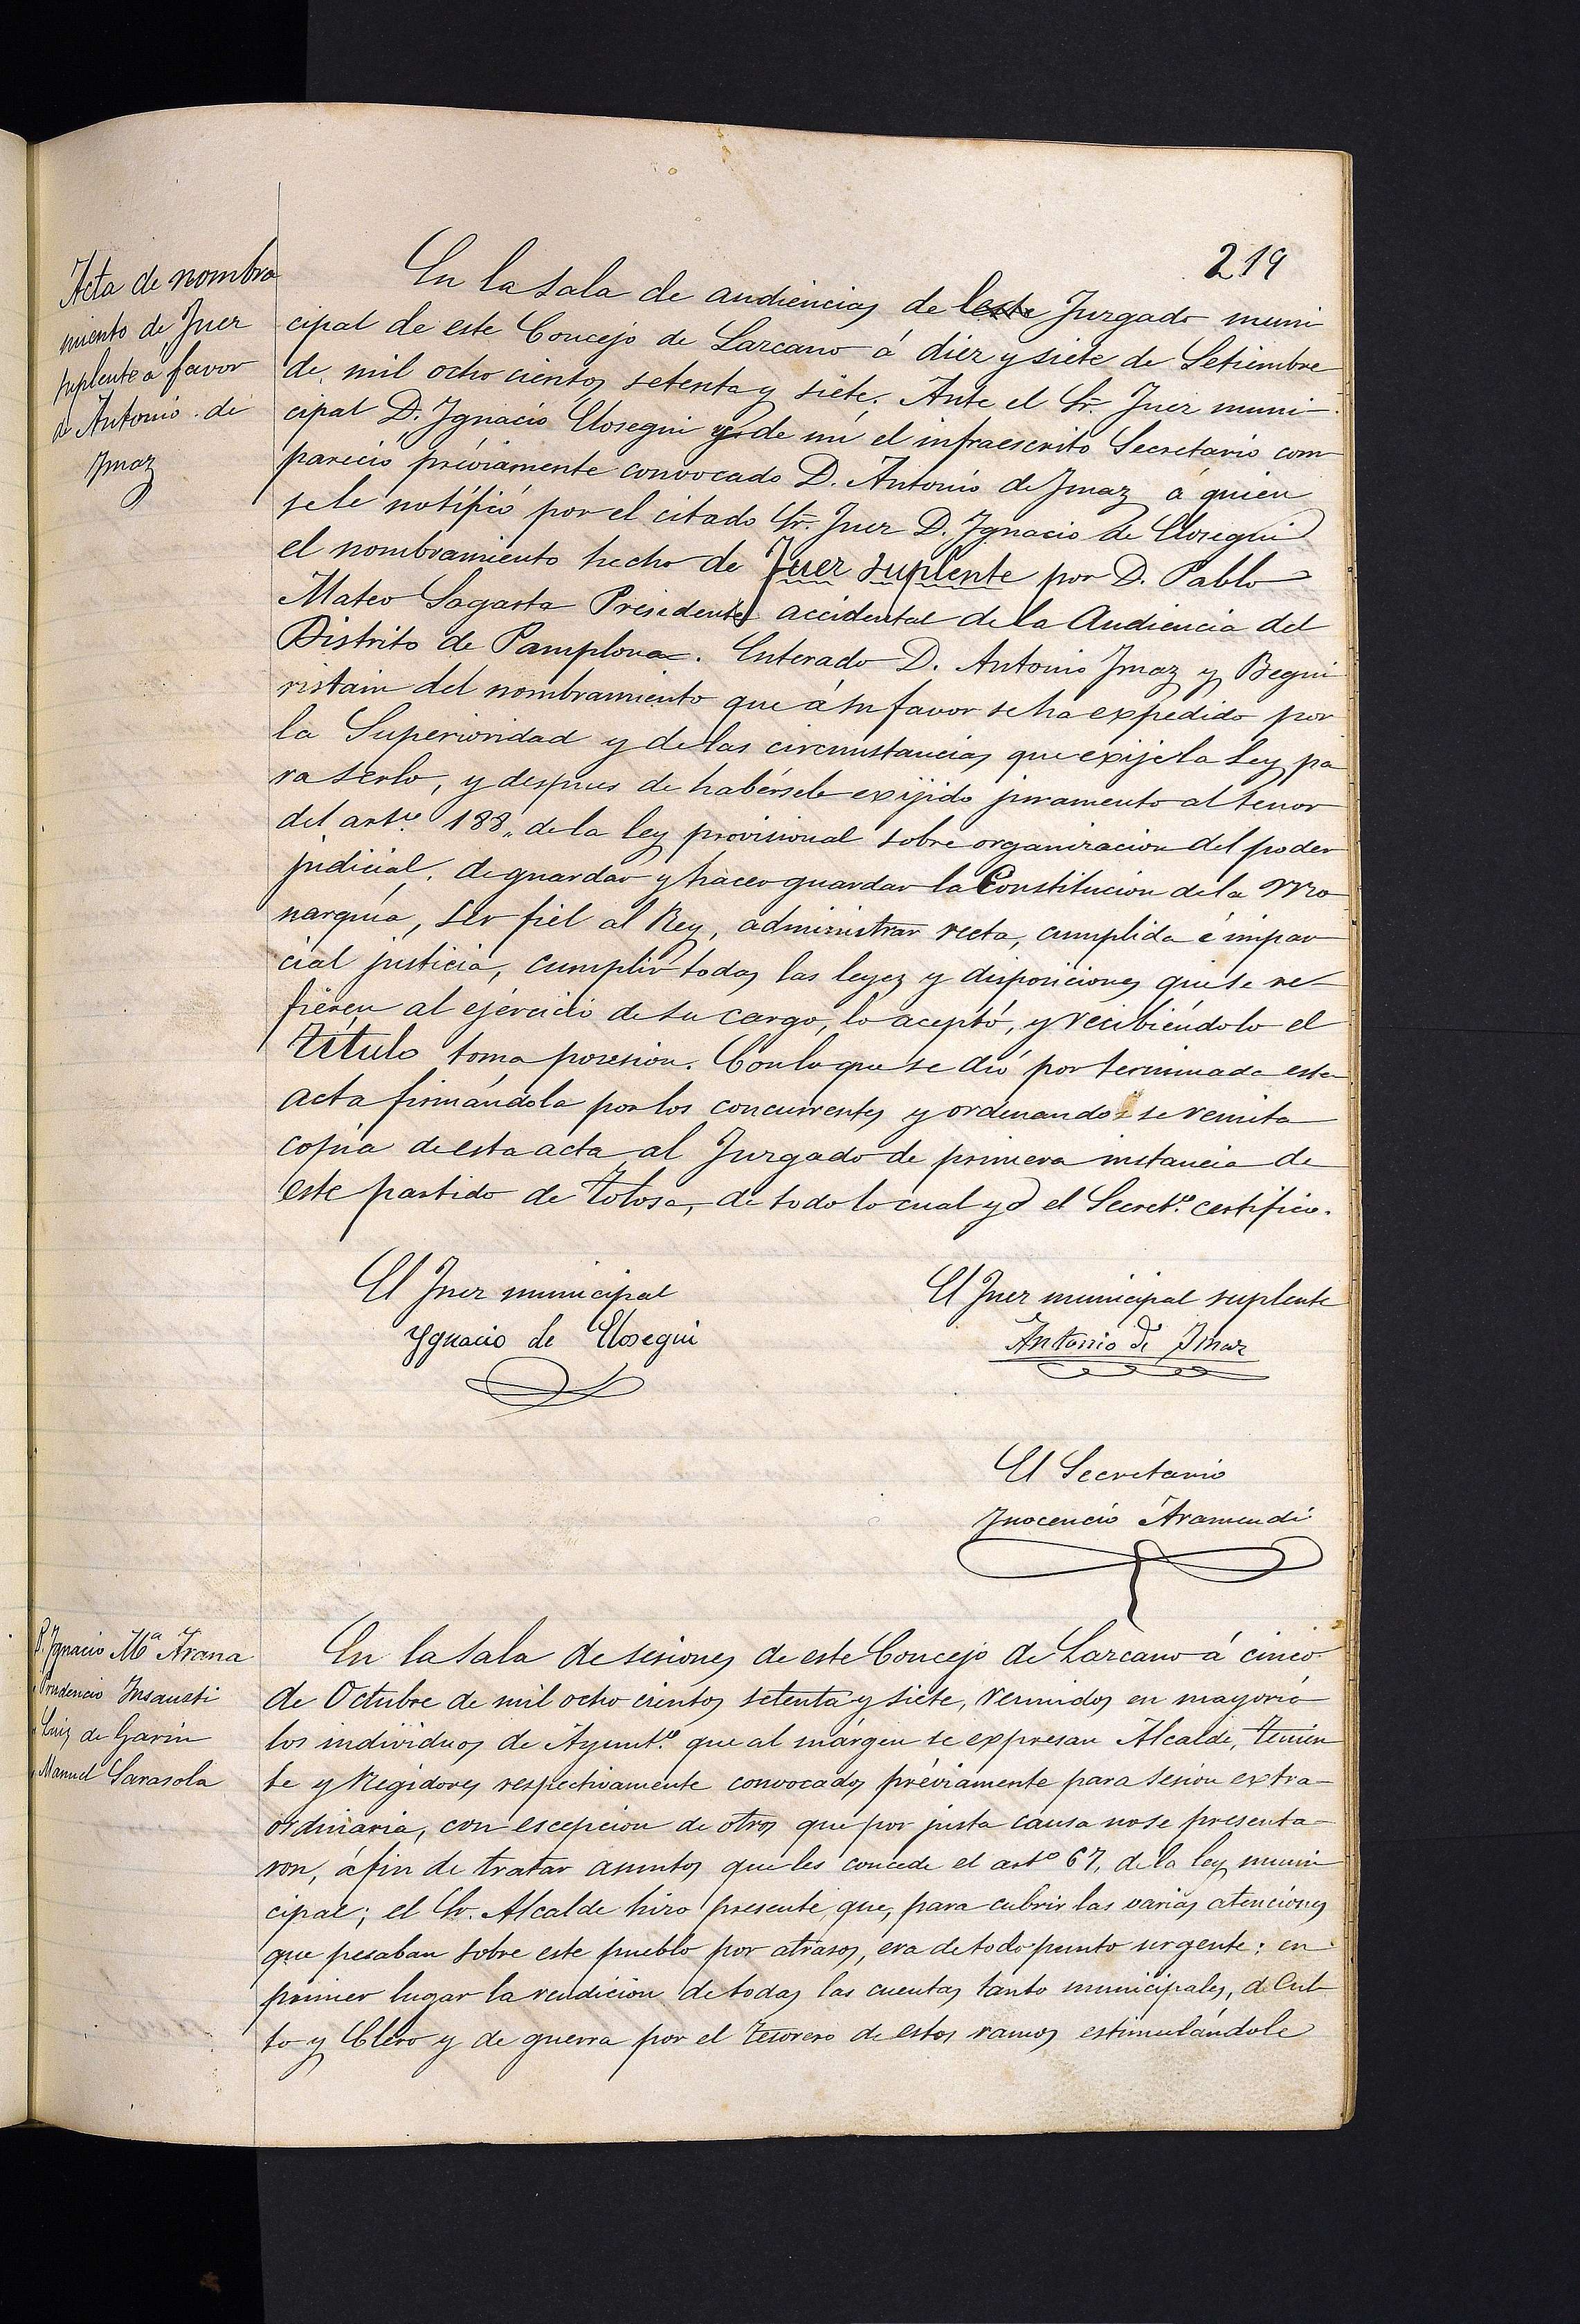 219
Acta de nombra
miento de Juez
suplente á favor
de Antonio de
Ymaz
En la sala de audiencias de l este Juzgado muni
cipal de este Concejo de Lazcano á diez y siete de Setiembre
de mil ocho cientos setenta y siete. Ante el Sr. Juez muni-
cipal D. Ygnacio Elosegui y de mi el infraescrito Secretario com
pareció préviamente convocado D. Antonio de Ymaz á quien
se le notifió por el citado Sr. Juez D. Ygnacio de Elosegui
el nombramiento hecho de Juez suplente por D. Pablo
Mateo Sagasta Presidente accidental de la Audiencia del
Distrito de Pamplona. Enterado D. Antonio Ymaz y Begui
ristain del nombramiento que á su favor se ha expedido por
la Superioridad y de las circunstancias que exije la ley pa
ra serlo, y despues de habérsele exijido juramento al tenor
del artº. 188,, de la ley provisional sobre organizacion del poder
judicial, de guardar y hacer guardar la Constitucion de la Mo
narquía, ser fiel al Rey, administrar recta, cumplida é impar
cial justicia, cumplir todas las leyes y disposiciones que se re-
fieren al ejercicio de su cargo, lo aceptó, y recibiéndolo el
título toma posesion. Con lo que se dió por terminada esta
acta firmándola por los concurrentes y ordenando se remita
copia de esta acta al Juzgado de primera instancia de
este partido de Tolosa, de todo lo cual yo el Secretº. certifico.
El Juez municipal
Ygnacio de Elosegui
El Juez municipal suplente
Antonio de Ymaz
El Secretario
Ynocencio Aramendi
D. Ygnacio Mª Arana
" Prudencio Insausti
" Luis de Garin
" Manuel Sarasola
En la sala de sesiones de este Concejo de Lazcano á cinco
de Octubre de mil ocho cientos setenta y siete, reunidos en mayoria
los individuos de Ayuntº. que al márgen se expresan Alcalde, tenien
te y Regidores respectivamente convocados préviamente para sesion extra-
ordinaria, con escepcion de otros que por justa causa no se presenta-
ron, á fin de tratar asuntos que les concede el artº 67, de la ley muni
cipal; el Sr. Alcalde hizo presente, que, para cubrir las varias atenciones
que pesaban sobre este pueblo por atrasos, era de todo punto urgente: en
primer lugar la rendicion de todas las cuentas tanto municipales, de Cul-
to y Clero y de guerra por el tesorero de estos ramos estimulándole